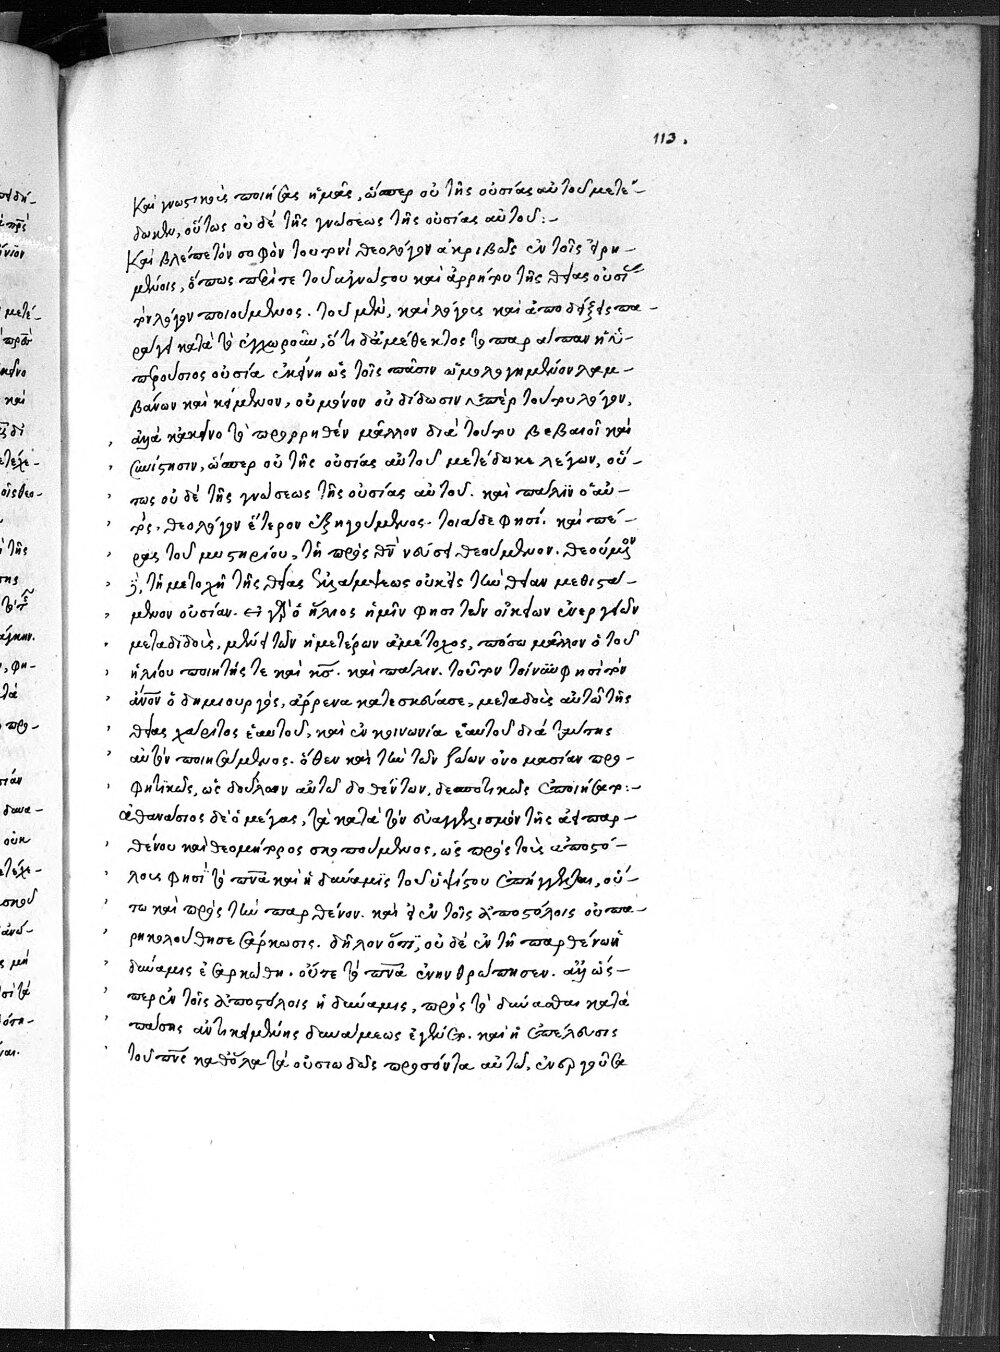 113.
καὶ γνωστικοὺς ποιήσας ἡμᾶς, ὥσπερ οὐ τῆς οὐσίας αὐτοῦ μετέ-
δωκεν, οὕτως οὐδὲ τῆς γνώσεως τῆς οὐσίας αὐτοῦ:-
Καὶ βλέπε τὸν σοφὸν τουτονὶ θεολόγον ἀκριβῶς ἐν τοῖς
μένοις, ὅπως περί τε τοῦ ἀγνώστου καὶ ἀρρήτου τῆς θείας οὐσί
τὸν λόγον ποιούμενος. τοῦ μὲν, καὶ λόγοις καὶ ἀποδείξεις πα-
ράγει κατὰ τὸ ἐγχωροῦν, ὅτι δ' ἀμέθεκτος τὸ παράπαν ἡ ὑ-
περούσιος οὐσία ἐκείνη ὡς τοῖς πᾶσιν ὡμολογημένον λαμ-
βάνων καὶ κείμενον, οὐ μόνον οὐ δίδωσιν ὑπὲρ τούτου λόγον,
ἀλλὰ κἀκεῖνο τὸ προρρηθὲν μᾶλλον διὰ τούτου βεβαιοῖ καὶ
συνίστησιν, ὥσπερ οὐ τῆς οὐσίας αὐτοῦ μετέδωκε λέγων, οὕ-
τως οὐδὲ τῆς γνώσεως τῆς οὐσίας αὐτοῦ. καὶ πάλιν ὁ αὐ-
τὸς, θεολόγον ἕτερον ἐξηγούμενος. τοιάδε φησί. καὶ πέ-
ρας τοῦ μυστηρίου, τῇ πρὸς θν νεύσει θεούμενον. θεούμενον
δὲ, τῇ μετοχῇ τῆς θείας ἐλλάμψεως οὐκ εἰς τὴν θείαν μεθιστά-
μενον οὐσίαν. εἰ γὰρ ὁ ἥλιος ἡμῖν φησι τῶν οἰκείων ἐνεργειῶν
μεταδιδοὺς, μένει τῶν ἡμετέρων ἀμέτοχος, πόσω μᾶλλον ὁ τοῦ
ἡλίου ποιητής τε καὶ κς. καὶ πάλιν. τοῦτον τοίνυν φησὶ τὸν
ἄνον ὁ δημιουργὸς, ἄρρενα κατεσκεύασε, μεταδοὺς αὐτῶ τῆς
θείας χάριτος ἑαυτοῦ, καὶ ἐν κοινωνία ἑαυτοῦ διὰ ταύτης
αὐτὸν ποιησάμενος. ὅθεν καὶ τὴν τῶν ζώων ὀνομασίαν προ-
φητικῶς, ὡς δούλων αὐτῶ δοθέντων, δεσποτικῶς ἐποιήσατο:-
ἀθανάσιος δὲ ὁ μέγας, τὰ κατὰ τὸν εὐαγγελισμὸν τῆς ἀειπαρ-
θένου καὶ θεομήτορος σκοπούμενος, ὡς πρὸς τοὺς ἀποστό-
λους φησὶ τὸ πνα καὶ ἡ δύναμις τοῦ ὑψίστου ἐπήγγελται, οὕ-
τω καὶ πρὸς τὴν παρθένον. καὶ εἰ ἐν τοῖς ἀποστόλοις οὐ πα-
ρηκολούθησε σάρκωσις. δῆλον ὅτι, οὐδὲ ἐν τῇ παρθένω ἡ
δύναμις ἐσαρκώθη. οὔτε τὸ πνα ἐνηνθρώπησεν. ἀλλ' ὡς-
περ ἐν τοῖς ἀποστόλοις ἡ δύναμις, πρὸς τὸ δύνασθαι κατὰ
πάσης ἀντικειμένης δυνάμεως ἐγένετο. καὶ ἡ ἐπέλευσις
τοῦ πνς καθόλα τὰ οὐσιωδῶς προσόντα αὐτῶ, ἐνεργοῦσα